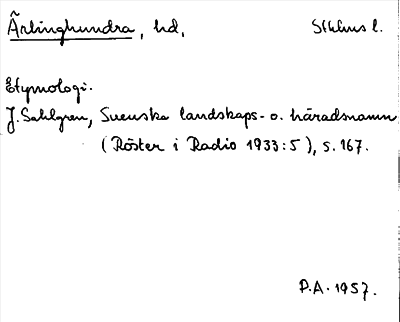 Ärlinghundra, hd, Sthlms l.
Etymologi.
J. Sahlgren, Svenska landskaps- o. häradsnamn
(Röster i Radio 1933:5), s. 167.
P.A. 1957.